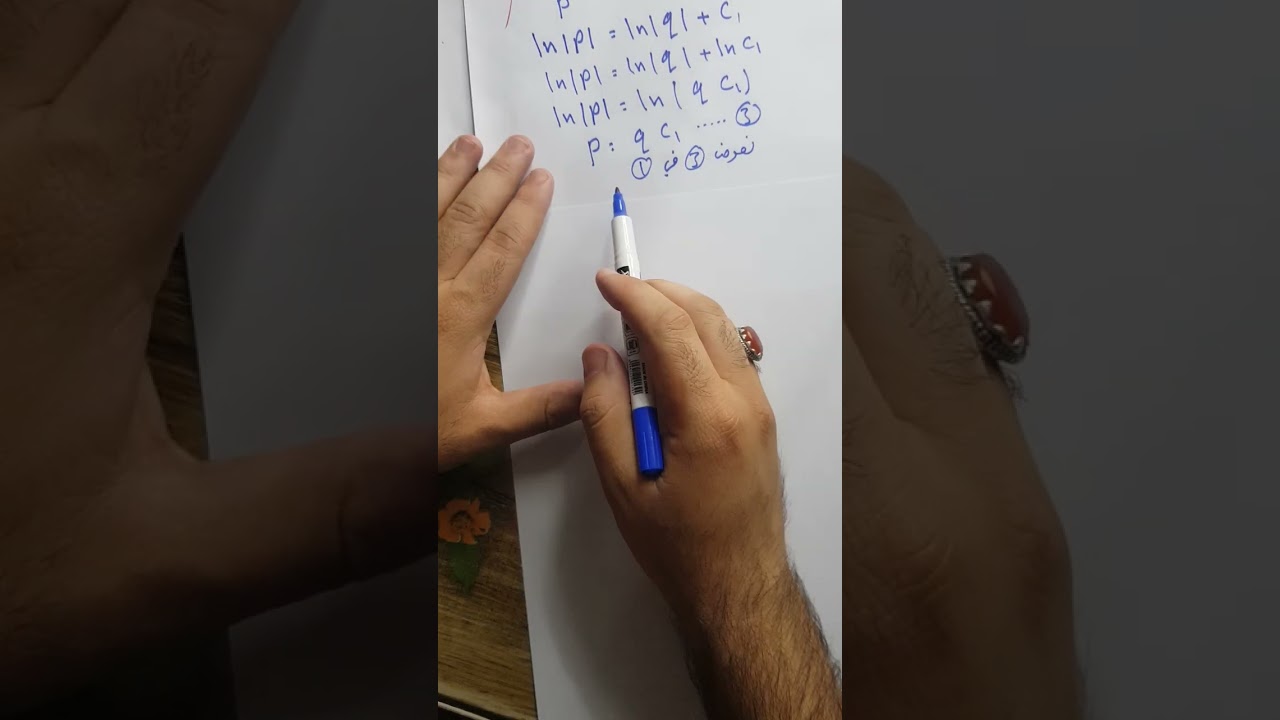 p
ln|p| = ln|q| + C₁
ln|p| = ln|q| + ln C₁
ln|p| = ln(q C₁)
p = q C₁ ..... ③
نعوض ③ في ①